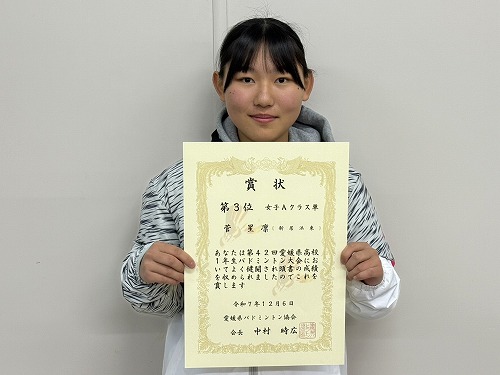 賞状
第3位 女子Aクラス単
菅 星凛 (新居浜東)
あなたは第42回愛媛県高校
1年生バドミントン大会にお
いてよく健闘され頭書の成績
を収められましたのでこれを
賞します
令和7年12月6日
愛媛県バドミントン協会
会長 中村 時広